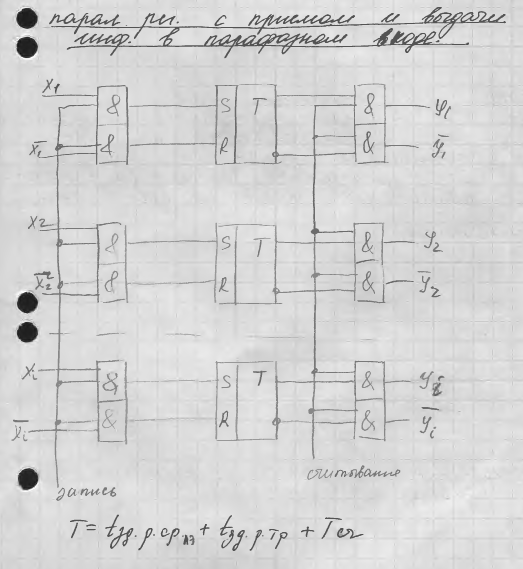 парал. рег. с приемом и выдачи
инф. в парафазном входе.
X1 & S T & y1
X̅1 & R & y̅1
X2 & S T & y2
X̅2 & R & y̅2
Xi & S T & yi
X̅i & R & y̅i
считывание
запись
T = tзд. р. ср лэ + tзд. р. тр + Tсч